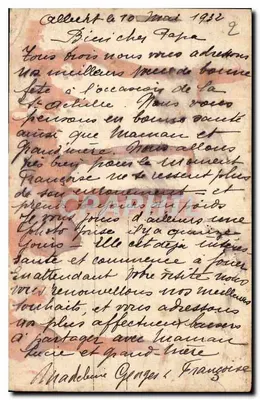 Albert le 10 Mai 1932
2
Bien cher Papa
Tous trois nous vous adressons
nos meilleurs vœux de bonne
fête à l'occasion de la
St Achille Nous vous
pensons en bonne santé
ainsi que Maman et
Grand'mère. Nous allons
très bien pour le moment
Françoise ne se ressent plus
de son et
prend poids
Je vous joins d'ailleurs une
photo prise il y a quinze
jours – Elle est déjà intéres
sante et commence à jouer
En attendant votre visite nous
vous renouvellons nos meilleurs
souhaits, et vous adressons
nos plus affectueux baisers
à partager avec Maman
Lucie et grand-mère
Madeleine Georges & Françoise
CPARAMA